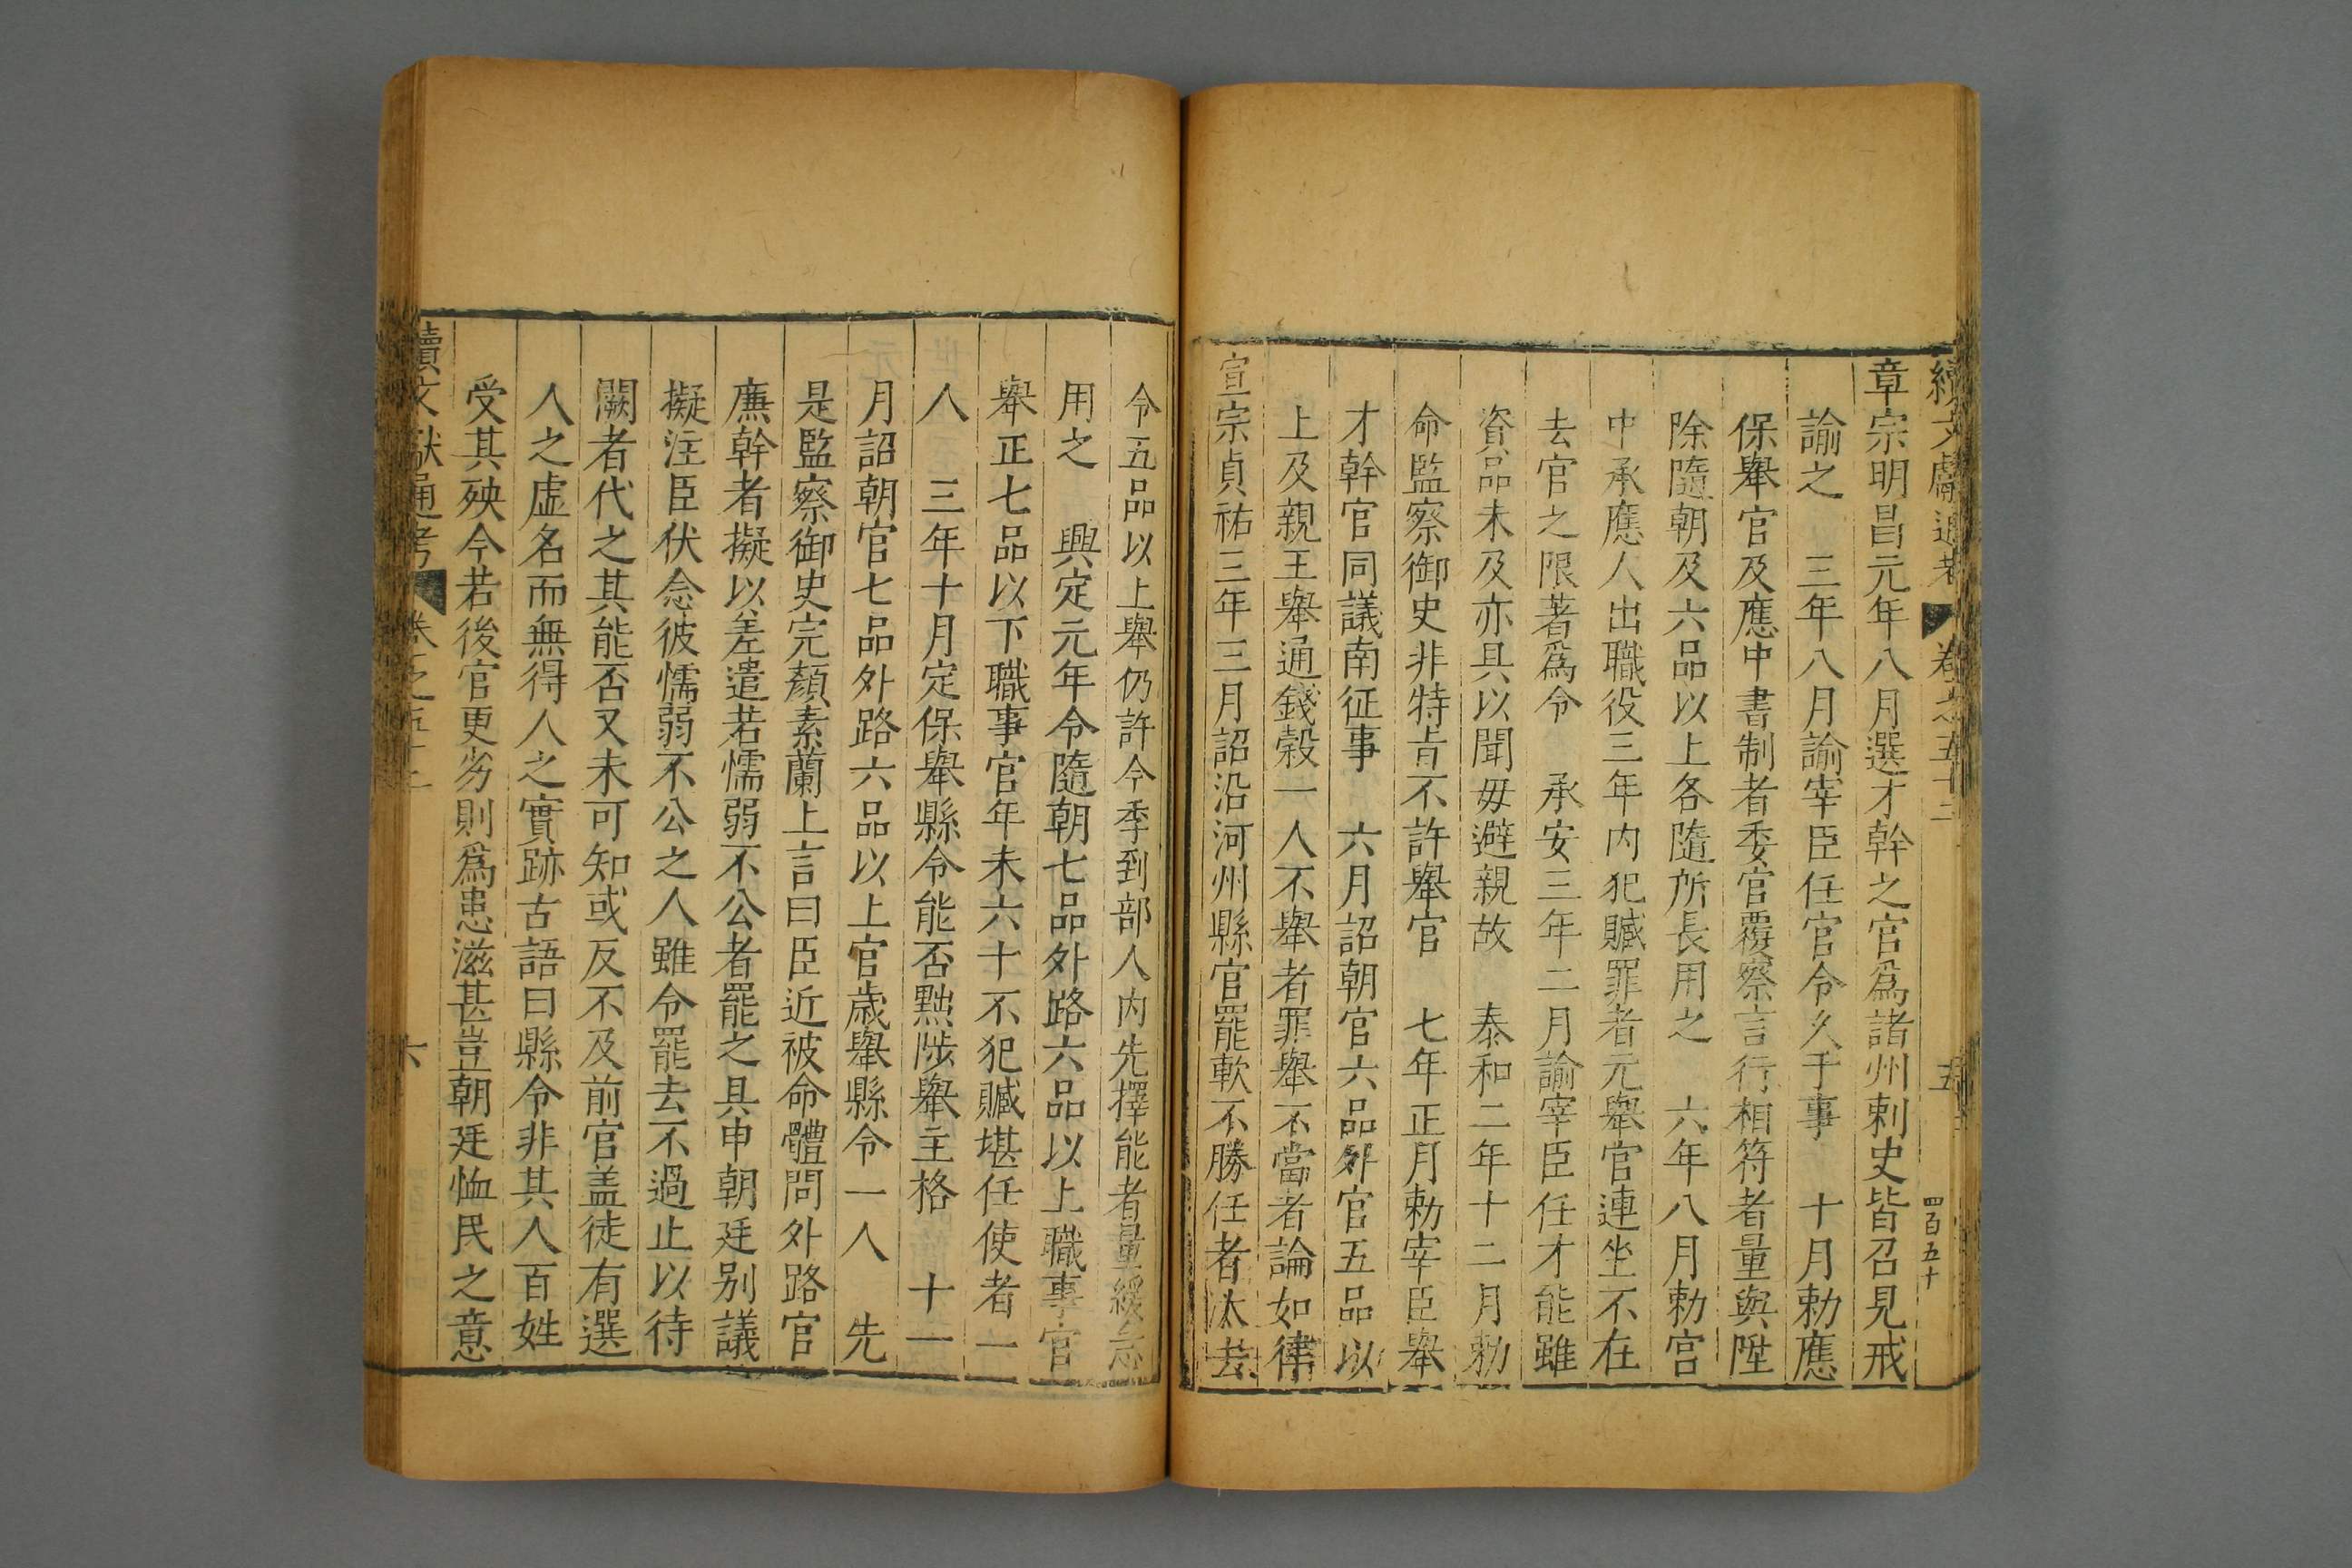 續文獻通考 卷之五十二 五 四百五十
章宗明昌元年八月選才幹之官爲諸州刺史皆召見戒
諭之 三年八月諭宰臣任官令久于事 十月勅應
保舉官及應中書制者委官覆察言行相符者量與陞
除隨朝及六品以上各隨所長用之 六年八月勅宮
中承應人出職役三年內犯贓罪者元舉官連坐不在
去官之限著爲令 承安三年二月諭宰臣任才能雖
資品未及亦具以聞毋避親故 泰和二年十二月勅
命監察御史非特㫖不許舉官 七年正月勅宰臣舉
才幹官同議南征事 六月詔朝官六品外官五品以
上及親王舉通錢穀一人不舉者罪舉不當者論如律
宣宗貞祐三年三月詔沿河州縣官罷軟不勝任者汰去
令五品以上舉仍許今季到部人內先擇能者量緩急
用之 興定元年令隨朝七品外路六品以上職事官
舉正七品以下職事官年未六十不犯贓堪任使者一
人 三年十月定保舉縣令能否黜陟舉主格 十一
月詔朝官七品外路六品以上官歲舉縣令一人 先
是監察御史完顏素蘭上言曰臣近被命體問外路官
廉幹者擬以差遣若懦弱不公者罷之具申朝廷别議
擬注臣伏念彼懦弱不公之人雖令罷去不過止以待
闕者代之其能否又未可知或反不及前官盖徒有選
人之虛名而無得人之實跡古語曰縣令非其人百姓
受其殃今若後官更劣則爲患滋甚豈朝廷恤民之意
續文獻通考 卷之五十二 六